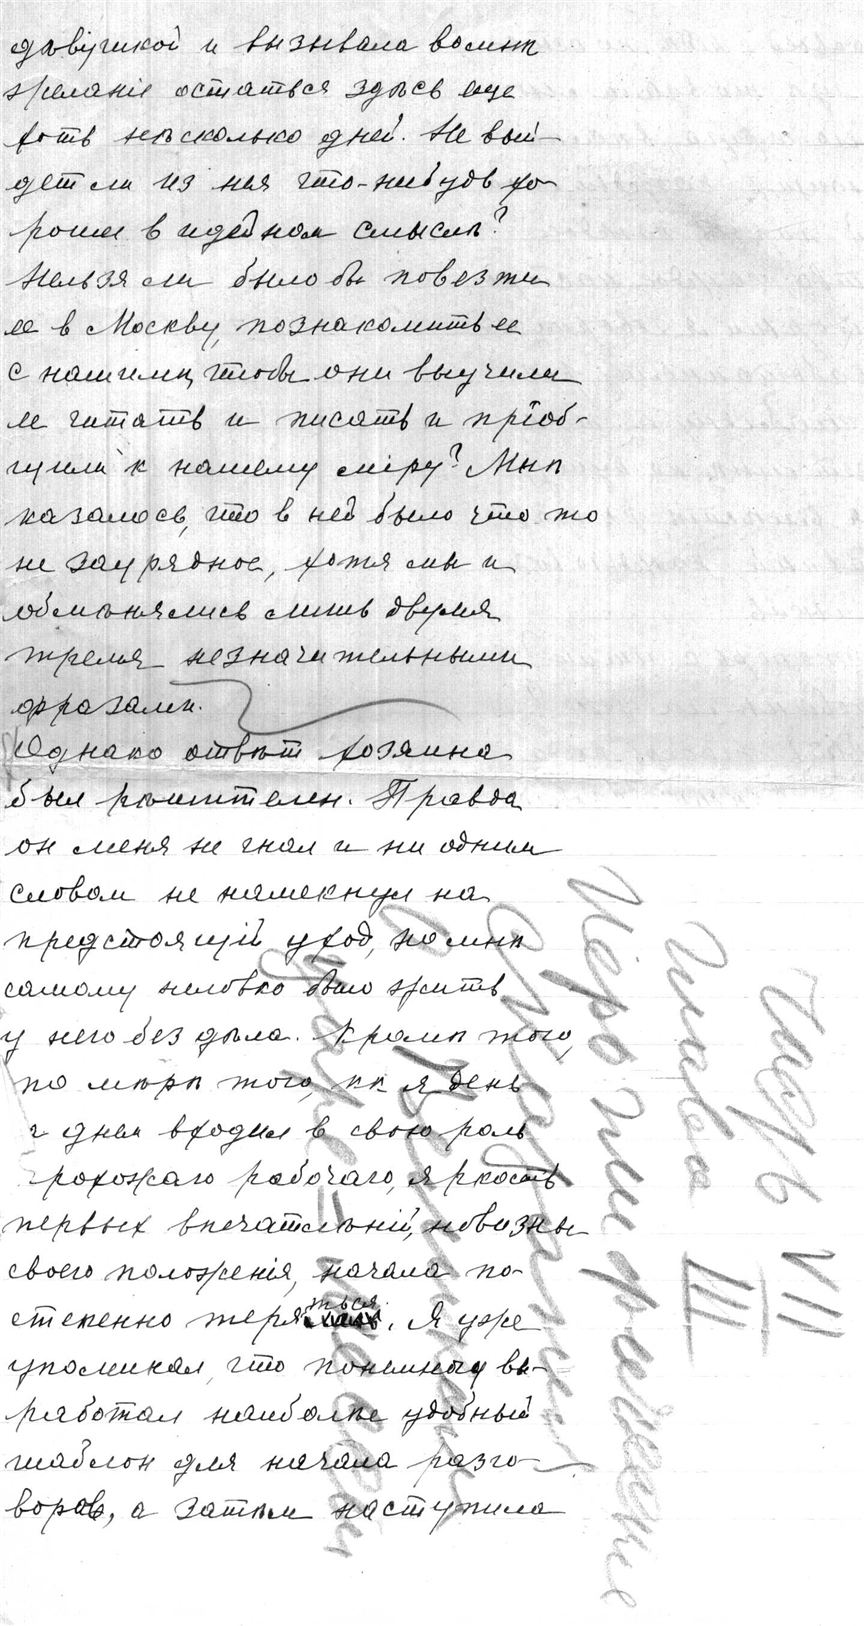 дѣвушкой и вызывала во мнѣ
желаніе остаться здѣсь еще
хоть нѣсколько дней. Не вый-
детъ ли из нея что-нибудь хо-
рошее в идейном смыслѣ?
Нельзя ли было бы повезти
ее в Москву, познакомить ее
с нашими, чтобы они выучили
ее читать и писать и пріоб-
щили к нашему міру? Мнѣ
казалось, что в ней было что то
не заурядное, хотя мы и
обмѣнялись лишь двумя
тремя незначительными
фразами.
Однако отвѣт хозяина
был рѣшителен. Правда
он меня не гнал и ни одним
словом не намекнул на
предстоящій уход, но мнѣ
самому неловко было жить
у него без дѣла. Кромѣ того,
по мѣрѣ того, кк я день
с днем входил в свою роль
прохожаго рабочаго, яркость
первых впечатлѣній, новизны
своего положенія, начала по-
степенно теряться. Я уже
упоминал, что понемногу вы-
работал наиболѣе удобный
шаблон для начала разго-
воров, а затѣм наступила
Часть VII
глава III